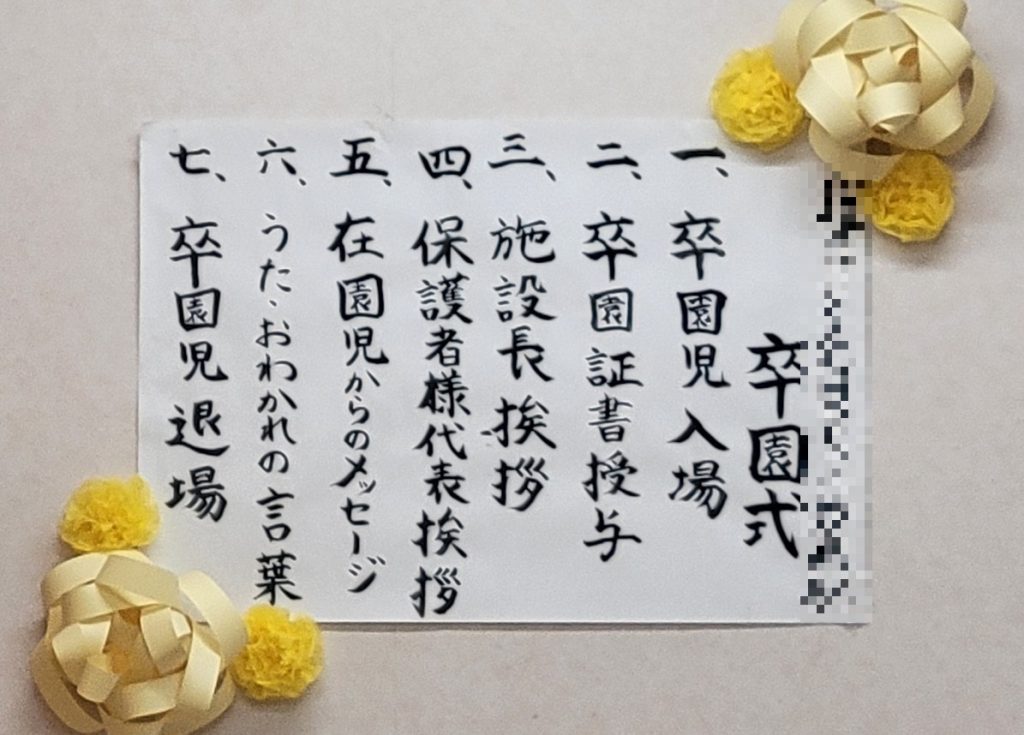 卒園式
一、卒園児入場
二、卒園証書授与
三、施設長挨拶
四、保護者様代表挨拶
五、在園児からのメッセージ
六、うた・おわかれの言葉
七、卒園児退場